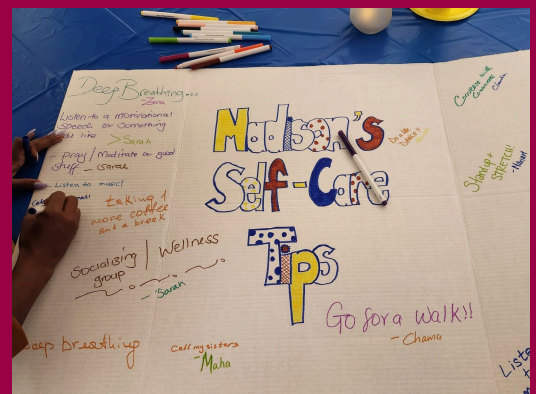 Deep Breathing...
Zena
Listen to a motivational
speech or something
you like
>Sarah
- pray / Meditate or good
stuff - Sarah
- Listen to music!
taking 1
more coffee
and a break
Socialising / Wellness
group
- Sarah
Deep breathing
Call my sisters
- Maha
Madison's
Self-Care
Tips
Go for a walk!!
- Chama
Converse with
Someone
Stand up &
STRETCH!
Liste